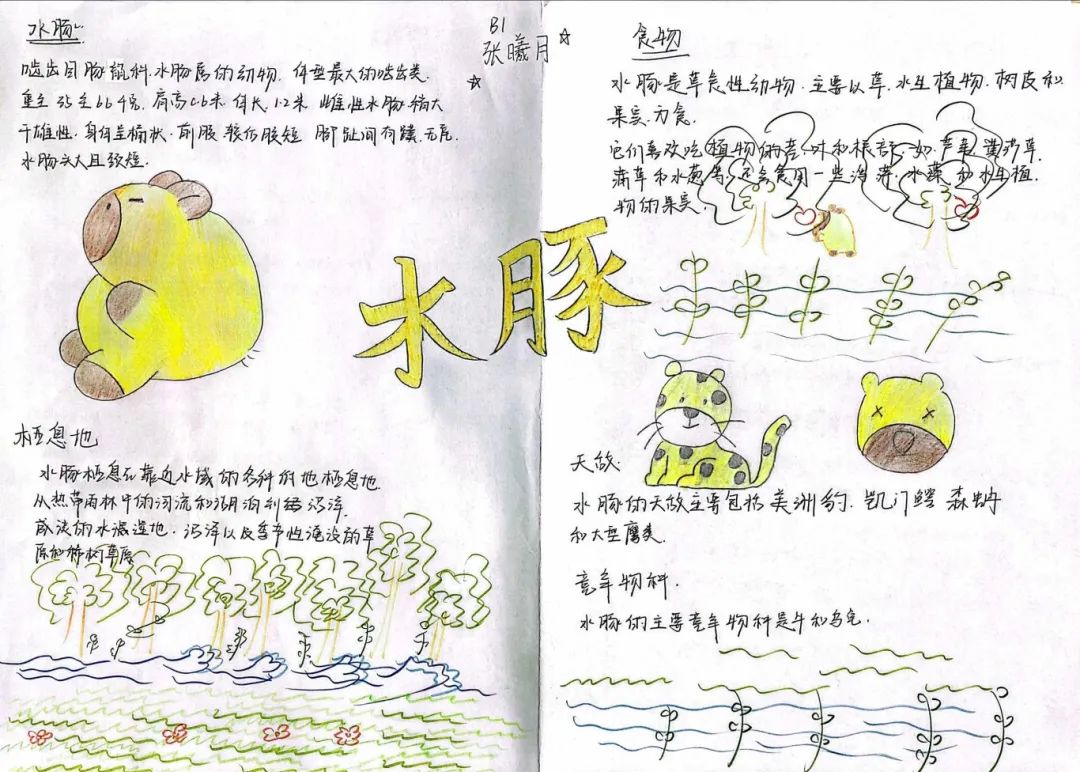 水豚
啮齿目豚鼠科.水豚属的动物.体型最大的啮齿类.
重达35至66千克.肩高0.6米 体长1.2米 雌性水豚稍大
于雄性.身体呈桶状.前肢较后肢短 脚趾间有蹼.无尾.
水豚头大且颈短.
B1
张曦月
水豚
栖息地
水豚栖息在靠近水域的各种的地栖息地
从热带雨林中的河流和湖泊到沼泽.
咸淡的水湿湿地.沼泽以及季节性淹没的草
原和稀树草原
食物
水豚是草食性动物.主要以草.水生植物.树皮和
果实.为食.
它们喜欢吃植物的茎.叶和根部.如.
蒲草和水葱等.还会食用一些海藻.水藻和水生植.
物的果实.
天敌.
水豚的天敌主要包括美洲豹.凯门鳄 森蚺
和大型鹰类.
竞争物种.
水豚的主要竞争物种是牛和乌龟.